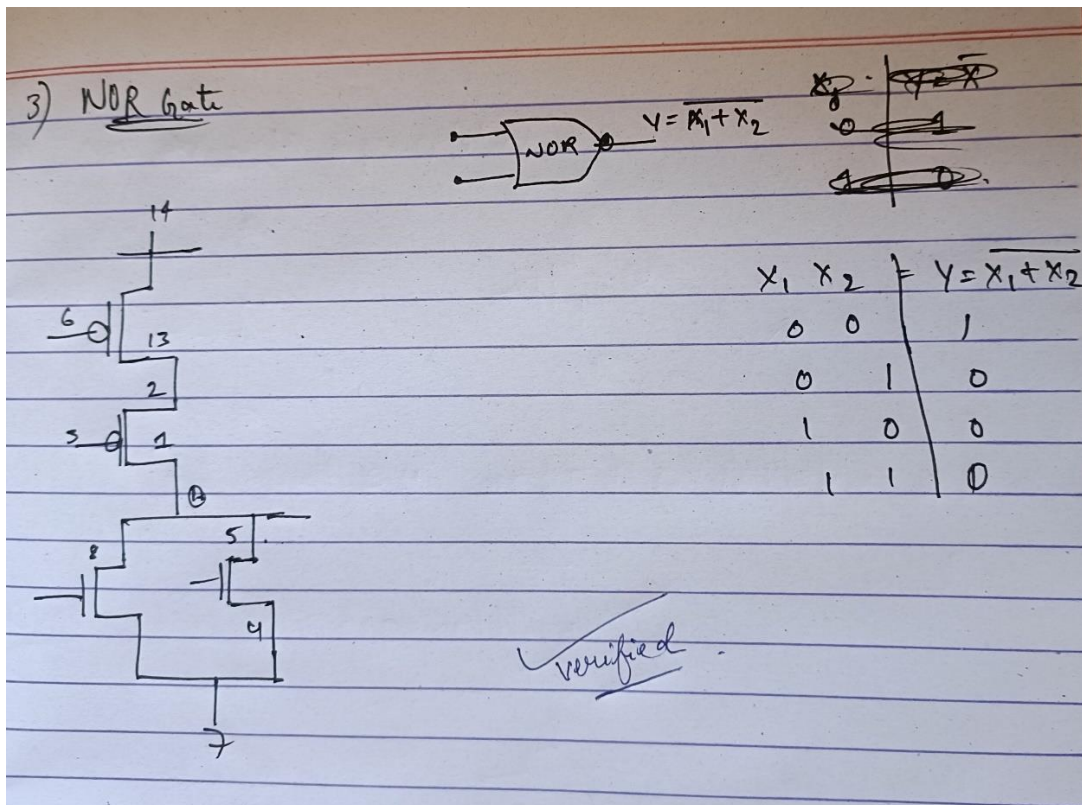 3) NOR Gate
NOR
Y = \overline{X₁ + X₂}
14
6
13
2
3
1
8
5
4
7
X₁ X₂ = Y = \overline{X₁ + X₂}
0 0 1
0 1 0
1 0 0
1 1 0
verified